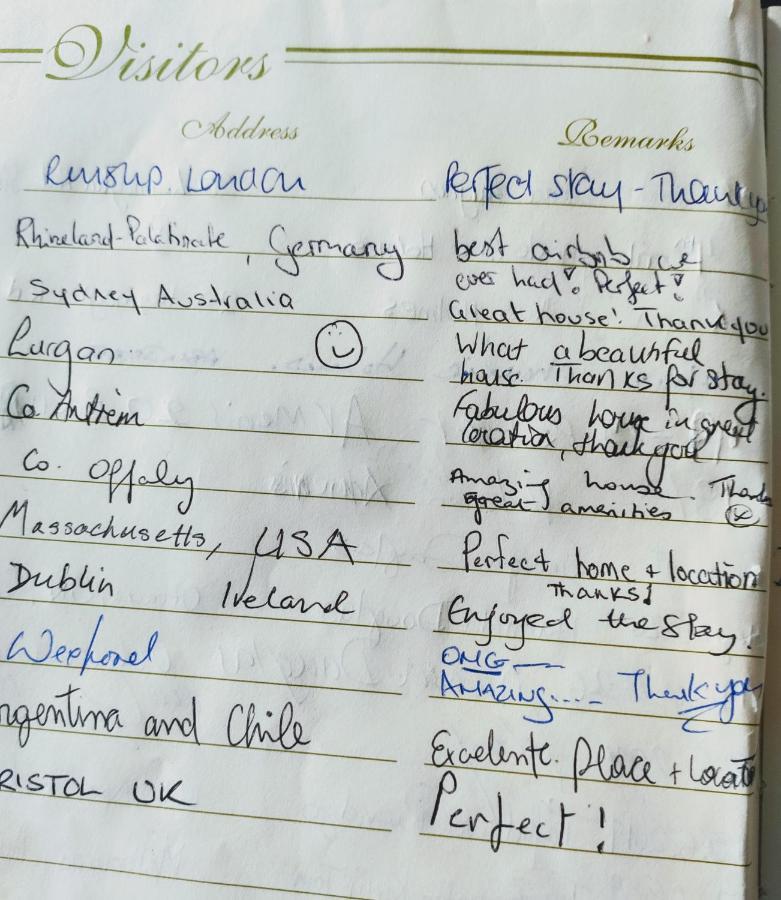 Visitors
Address Remarks
London Perfect stay - Thank
Rhineland-Palatinate, Germany best airbnb we
ever had! Perfect!
Sydney Australia Great house! Thank you
Lurgan What a beautiful
house. Thanks for stay.
Co Antrim Fabulous house in great
location, thank you
Co. Offaly Amazing house. Thanks
great amenities
Massachusetts, USA Perfect home + location
Thanks!
Dublin Ireland Enjoyed the stay!
OMG —
AMAZING.... Thank you
rgentina and Chile Excelente. place + Locati
RISTOL UK Perfect!